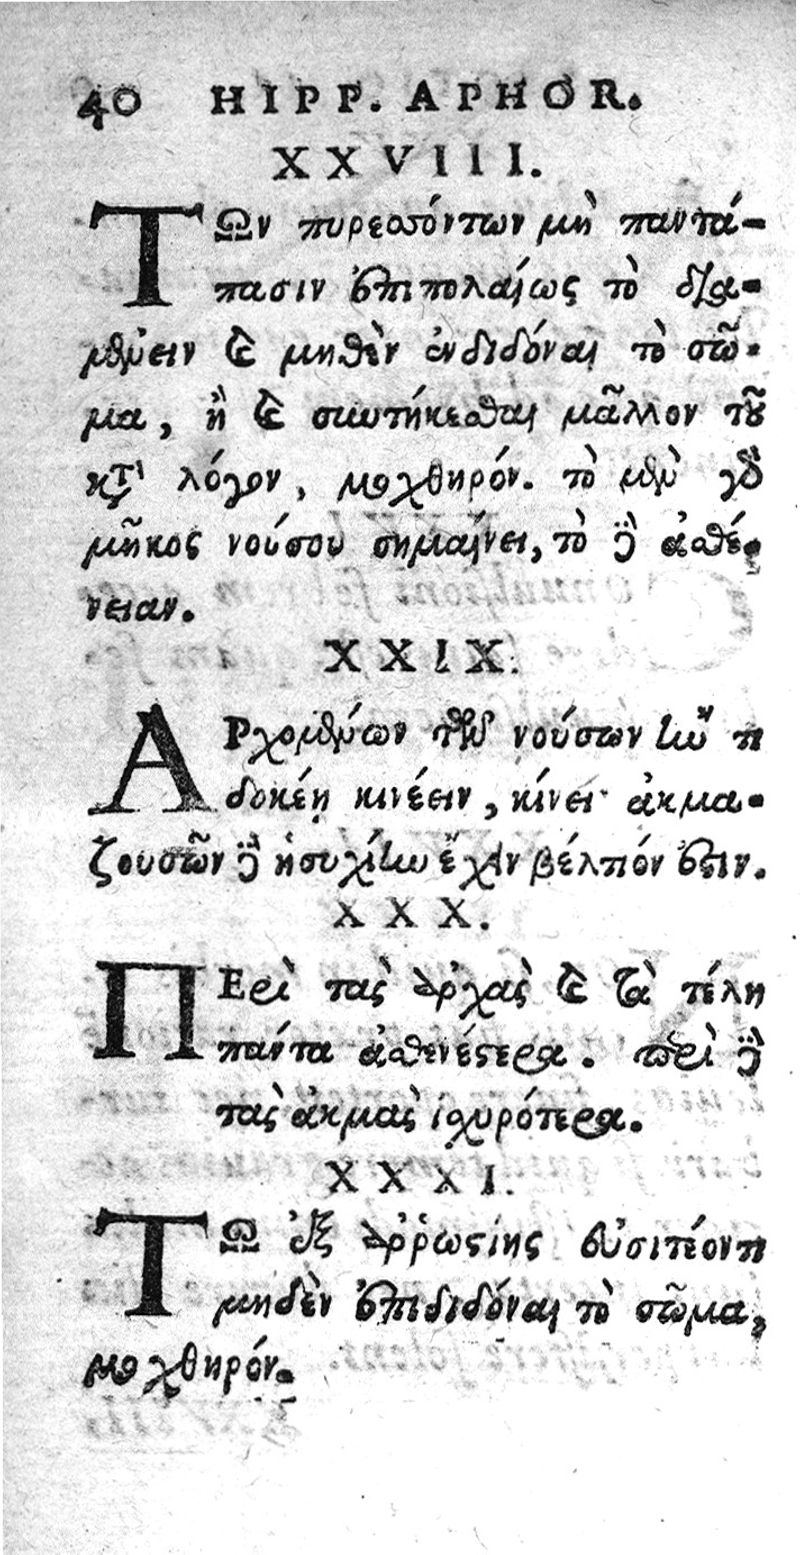 40 HIPP. APHOR.
XXVIII.
ΤΩν πυρεσσόντων μὴ παντά-
πασιν ἐπιπολαίως τὸ δια-
μένειν καὶ μηθὲν ἐνδιδόναι τὸ σῶ-
μα, ἢ καὶ συντήκεσθαι μᾶλλον τοῦ
κτ λόγον, μοχθηρόν. τὸ μὲν γὸ
μῆκος νούσου σημαίνει, τὸ δὲ ἀσθέ-
νειαν.
XXIX.
ΑΡχομένων τῶν νούσων ἤν τι
δοκέῃ κινέειν, κίνει· ἀκμα-
ζουσῶν δὲ ἡσυχίην ἔχειν βέλτιόν ἐστιν.
XXX.
ΠΕρὶ τὰς ἀρχὰς καὶ τὰ τέλη
πάντα ἀσθενέστερα. περὶ δὲ
τὰς ἀκμὰς ἰσχυρότερα.
XXXI.
ΤΩ ἐξ ἀῤῥωστίης εὐσιτέοντι
μηδὲν ἐπιδιδόναι τὸ σῶμα,
μοχθηρόν.